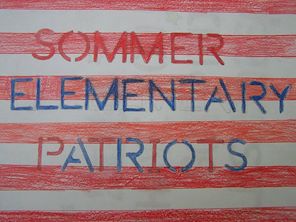 SOMMER
ELEMENTARY
PATRIOTS